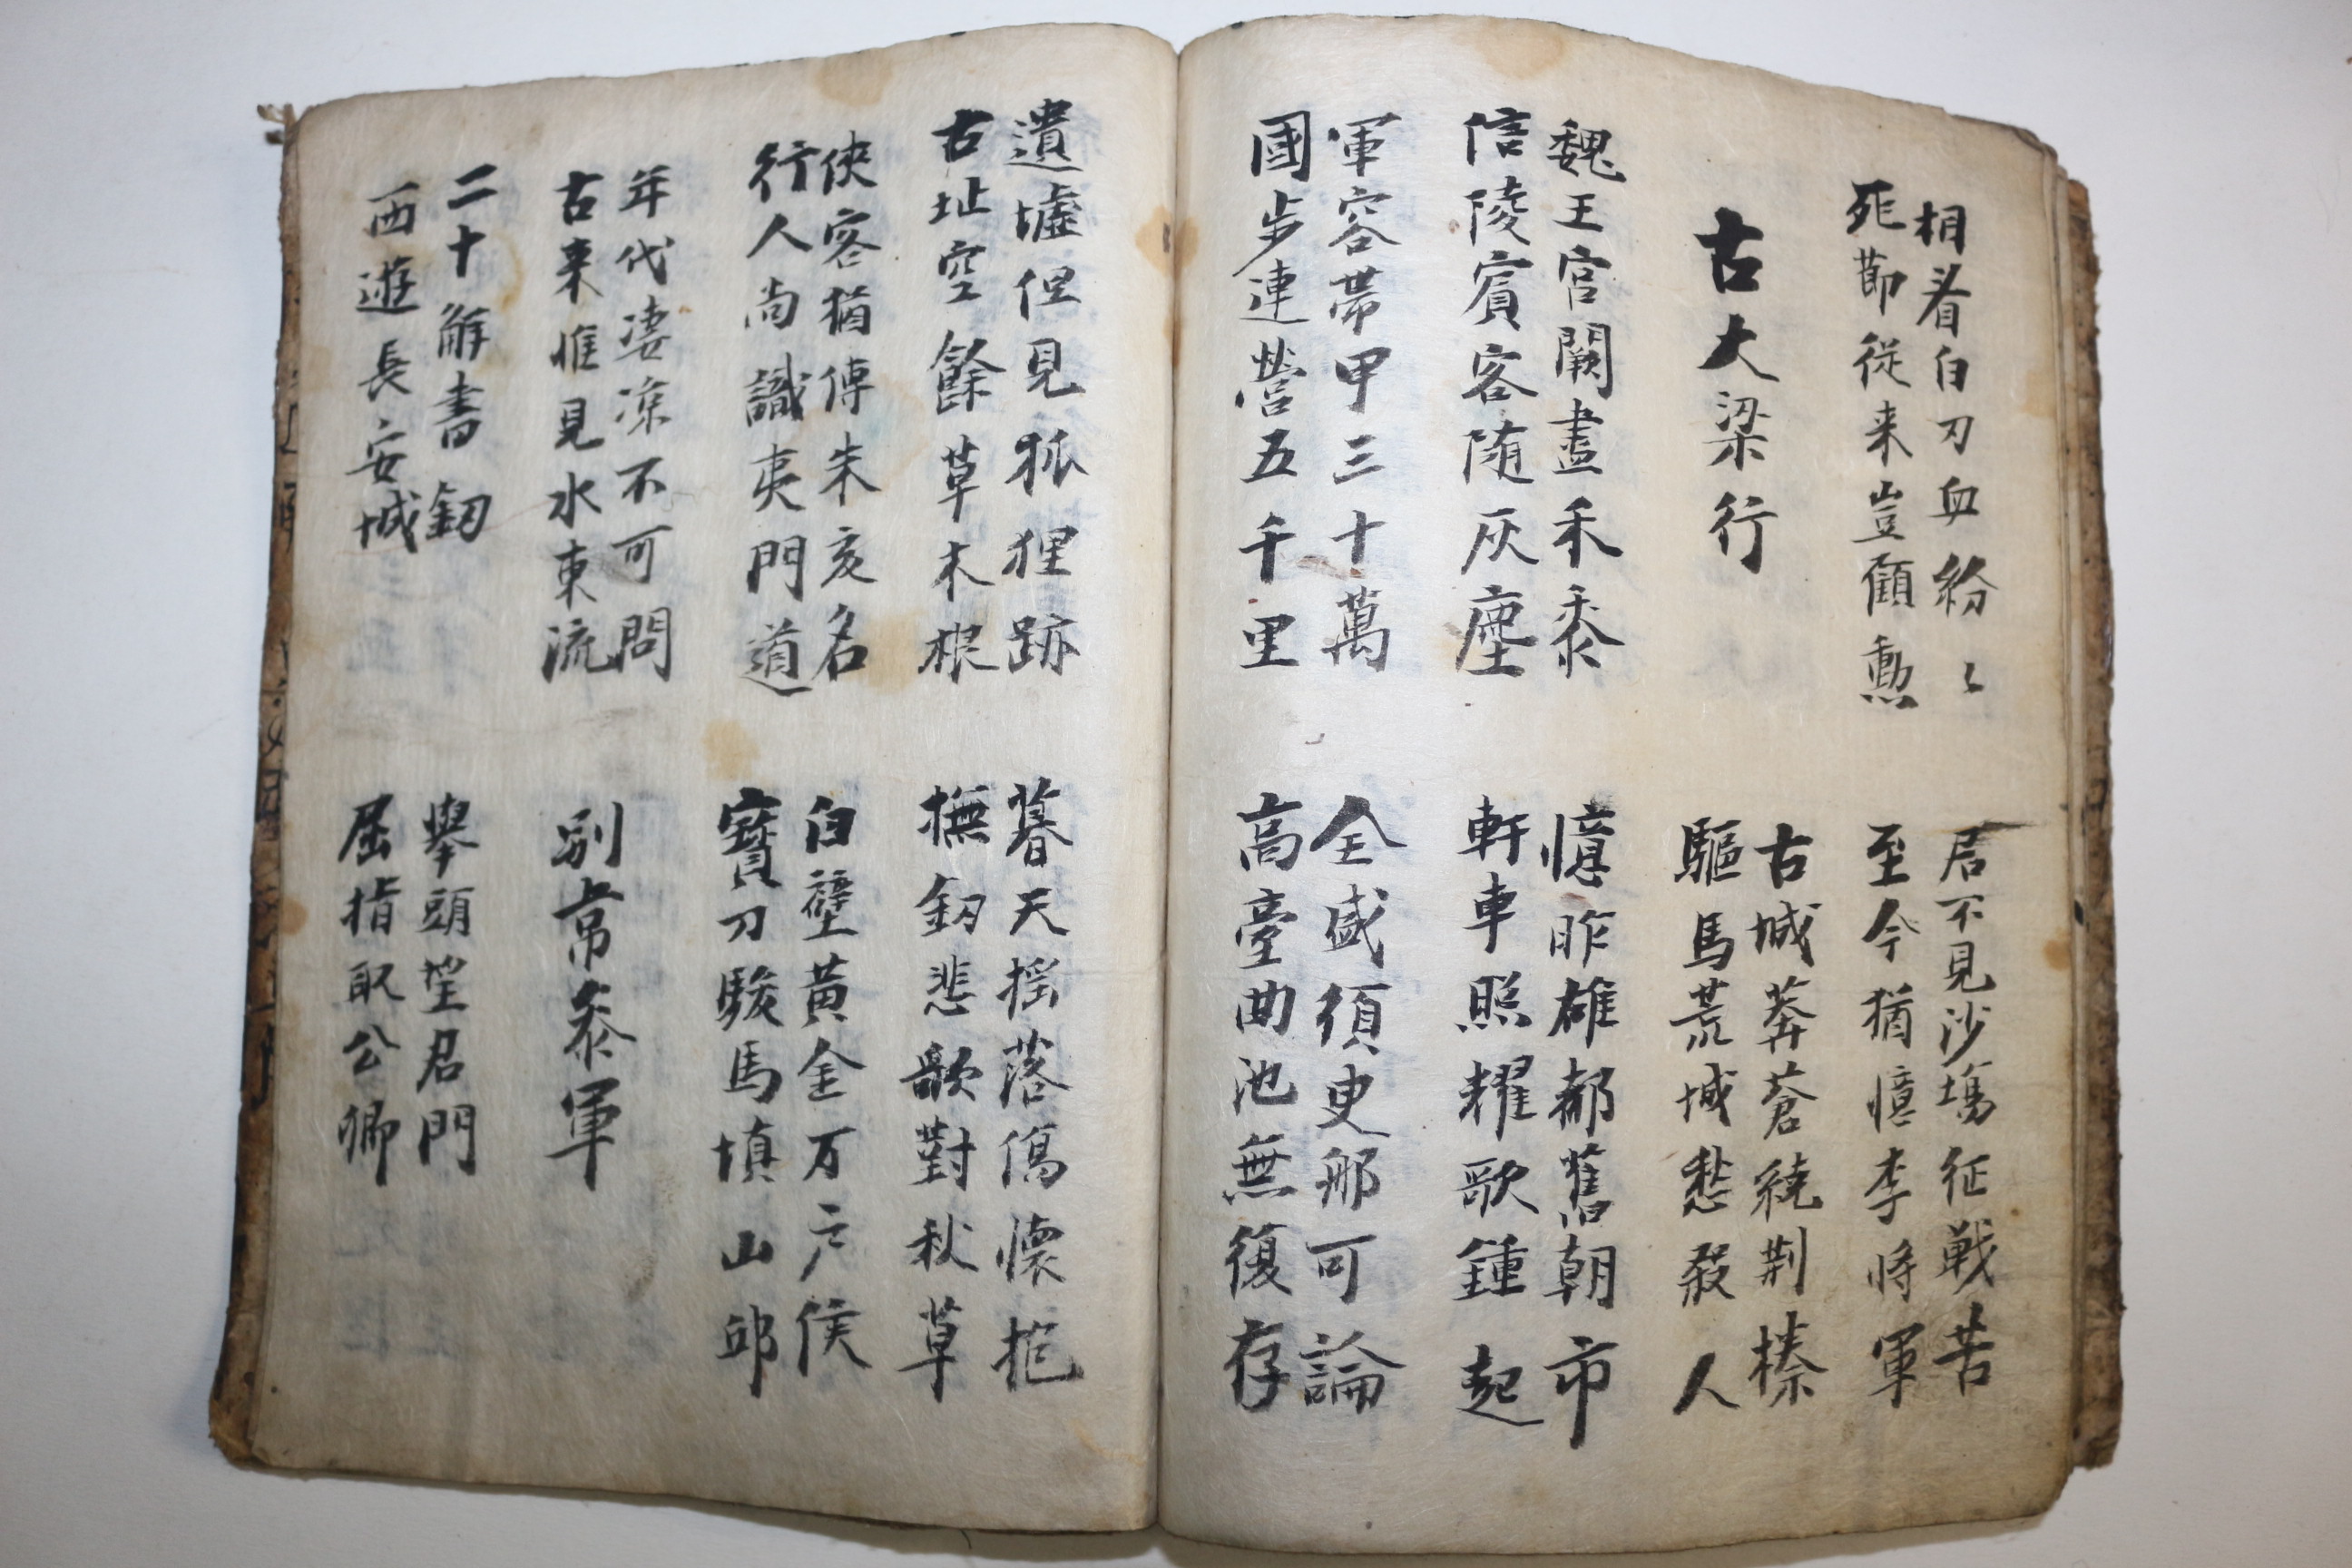 相看白刃血紛〻
死節従来豈顧勲
君不見沙塲征戦苦
至今猶憶李將軍
古大梁行
古城莽蒼繞荆榛
驅馬荒城愁殺人
魏王宫闕盡禾黍
信陵賓客随灰塵
憶昨雄都舊朝市
軒車照耀歌鍾起
軍容帶甲三十萬
國步連營五千里
全盛須更那可論
高臺曲池無復存
遺墟但見狐狸跡
古址空餘草木根
暮天揺落傷懷抱
撫釰悲歌對秋草
俠客猶傳朱亥名
行人尚識夷門道
白璧黄金万户侯
寶刀駿馬填山邱
年代凄凉不可問
古来惟見水東流
别常叅軍
二十解書釰
西遊長安城
舉頭望君門
屈指取公卿